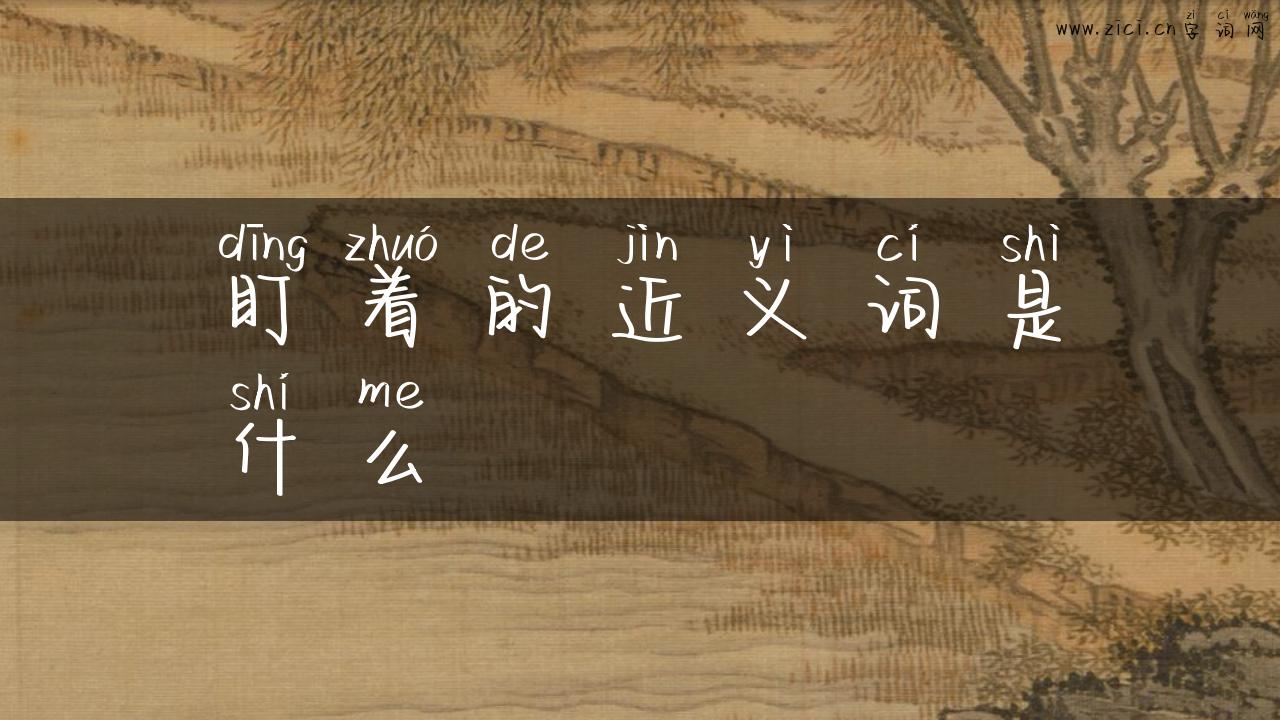 zì cí wǎng
www.zici.cn 字词网
dīng zhuó de jìn yì cí shì
盯着的近义词是
shí me
什么